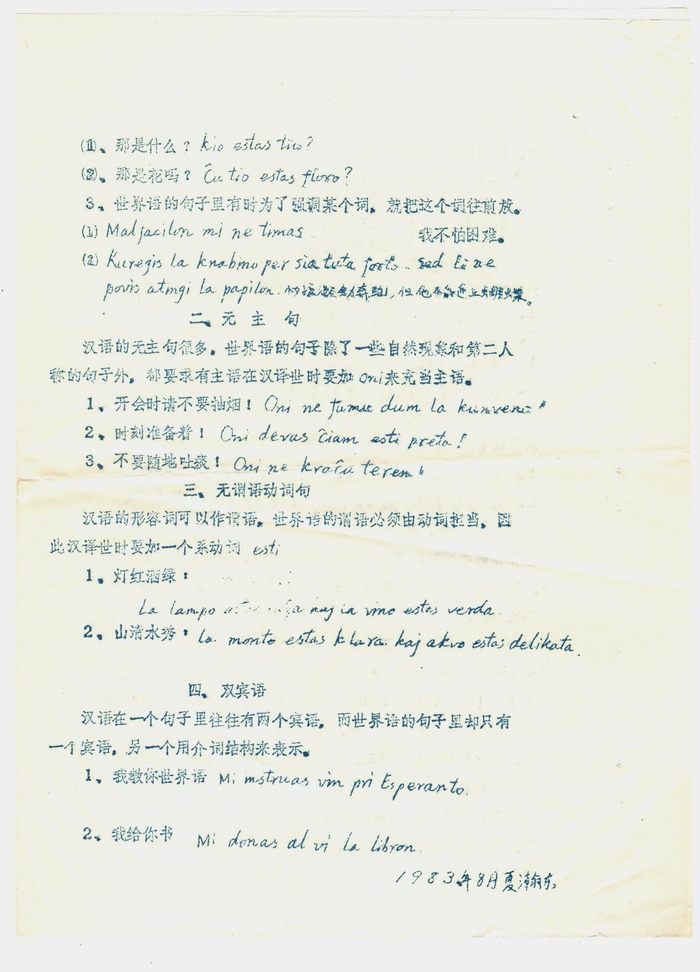 (1)、那是什么？ kio estas tio?
(2)、那是花吗？ Ĉu tio estas floro?
3、世界语的句子里有时为了强调某个词，就把这个词往前放。
(1) Malfacilon mi ne timas 我不怕困难。
(2) Kuregis la knabino per sia tuta forto. sed ŝi ne
povis atingi la papilon.
二、无 主 句
汉语的无主句很多，世界语的句子除了一些自然现象和第二人
称的句子外，都要求有主语在汉译世时要加 oni 来充当主语。
1、开会时请不要抽烟！ Oni ne fumu dum la kunveno"
2、时刻准备着！ Oni devas ĉiam esti preta!
3、不要随地吐痰！ Oni ne kraĉu teren"
三、无谓语动词句
汉语的形容词可以作谓语，世界语的谓语必须由动词担当，因
此汉译世时要加一个系动词 esti
1、灯红酒绿：
La lampo vino estas verda
2、山清水秀： la monto estas klara kaj akvo estas delikata.
四、双宾语
汉语在一个句子里往往有两个宾语，而世界语的句子里却只有
一个宾语，另一个用介词结构来表示。
1、我教你世界语 Mi instruas vin pri Esperanto.
2、我给你书 Mi donas al vi la libron.
1983年8月夏